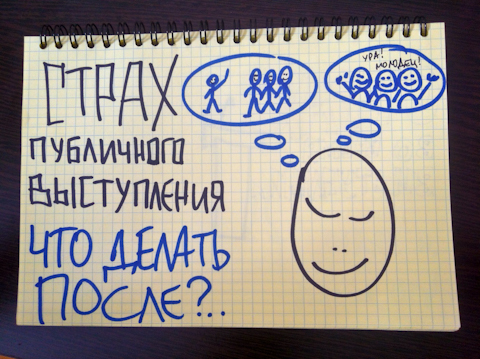 СТРАХ
ПУБЛИЧНОГО
ВЫСТУПЛЕНИЯ
ЧТО ДЕЛАТЬ
ПОСЛЕ?..
УРА!
МОЛОДЕЦ!